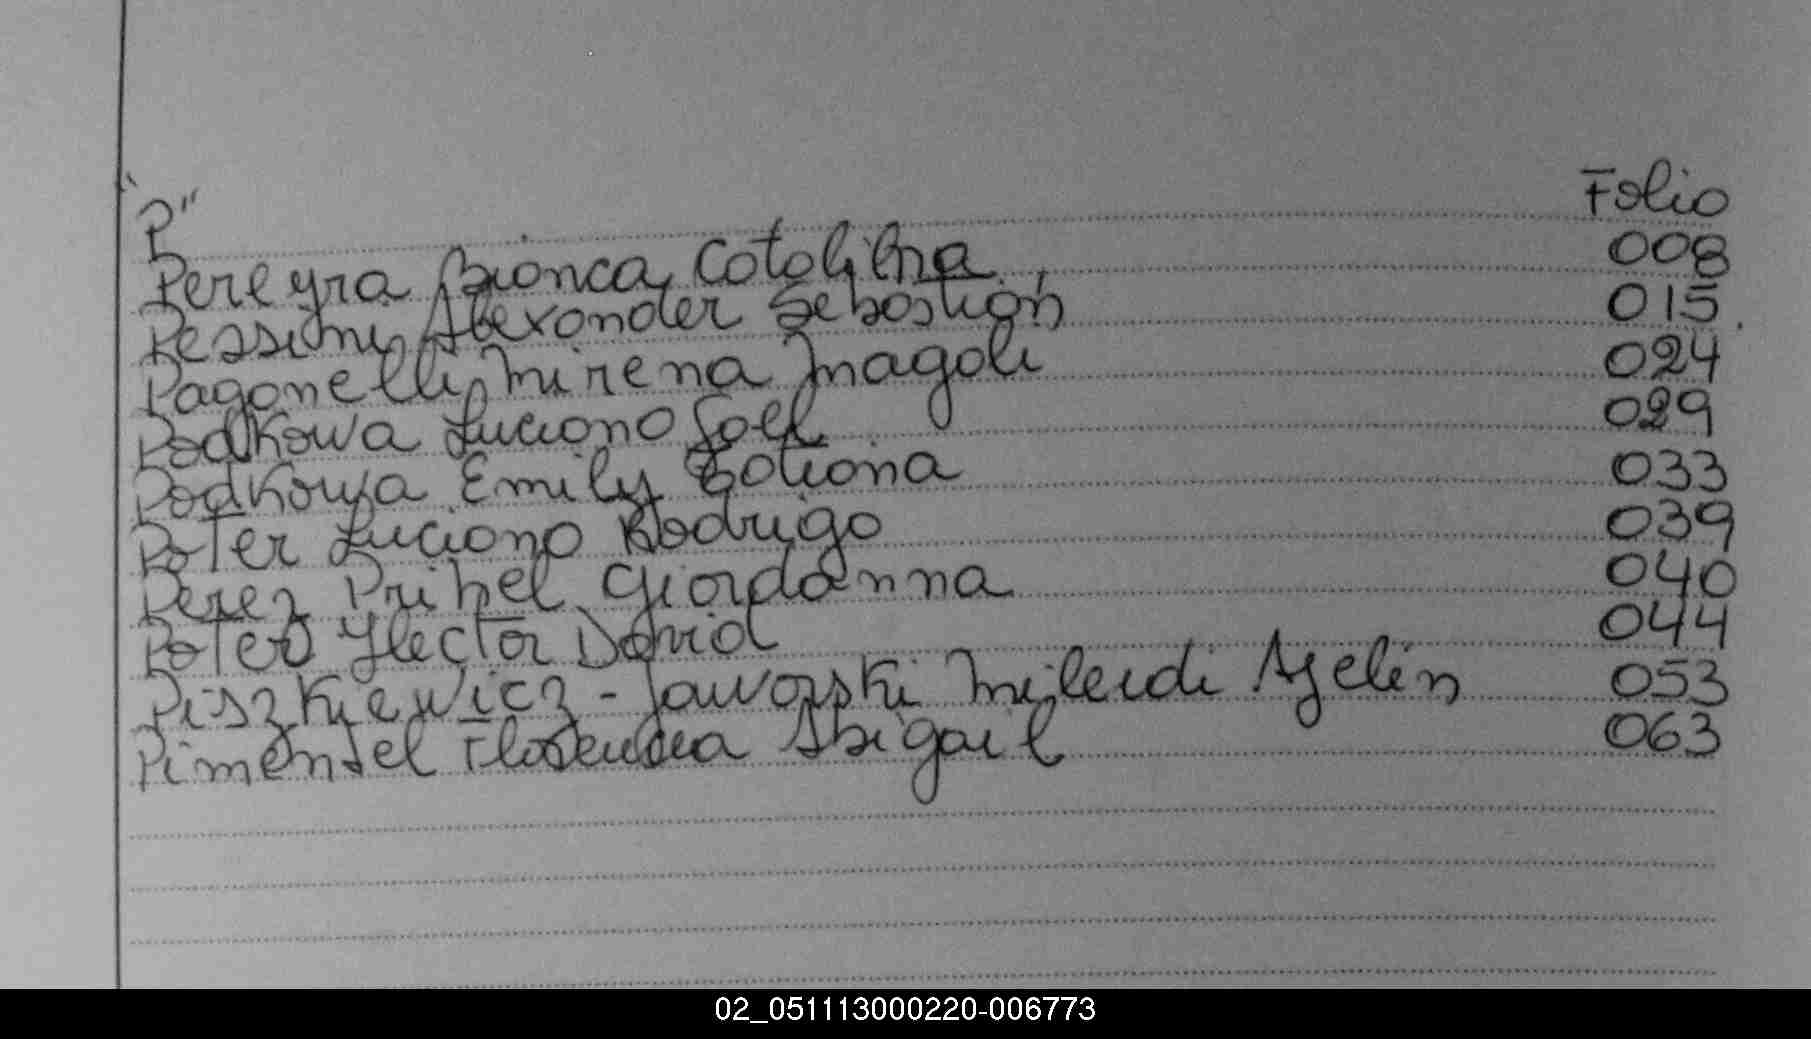 "P" Folio
Pereyra Bianca Catalina 008
Pessini Alexander Sebastián 015
Paganelli Mirena Magali 024
Podkowa Luciano Joel 029
Podkowa Emily Tatiana 033
Poter Luciano Rodrigo 039
Perez Prihel Giordanna 040
Poter Hector David 044
Piszkiewicz - Jaworski Mileidi Ayelén 053
Pimentel Florencia Abigail 063
02_051113000220-006773